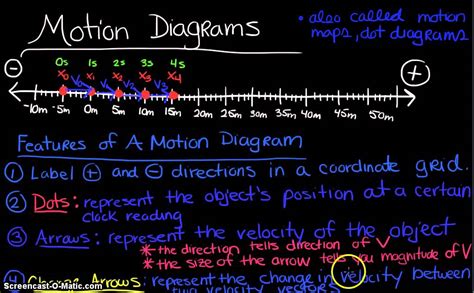 Motion Diagrams
• also called motion
maps, dot diagrams
0s 1s 2s 3s 4s
X₀ X₁ X₂ X₃ X₄
-10m -5m 0m 5m 10m 15m 20m 25m 30m 35m 40m 45m 50m
Features of A Motion Diagram
① Label ⊕ and ⊖ directions in a coordinate grid.
② Dots: represent the object's position at a certain
clock reading
③ Arrows: represent the velocity of the object
* the direction tells direction of V
* the size of the arrow tells you magnitude of V
④ Change Arrows: represent the change in velocity between
two velocity vectors
Screencast-O-Matic.com